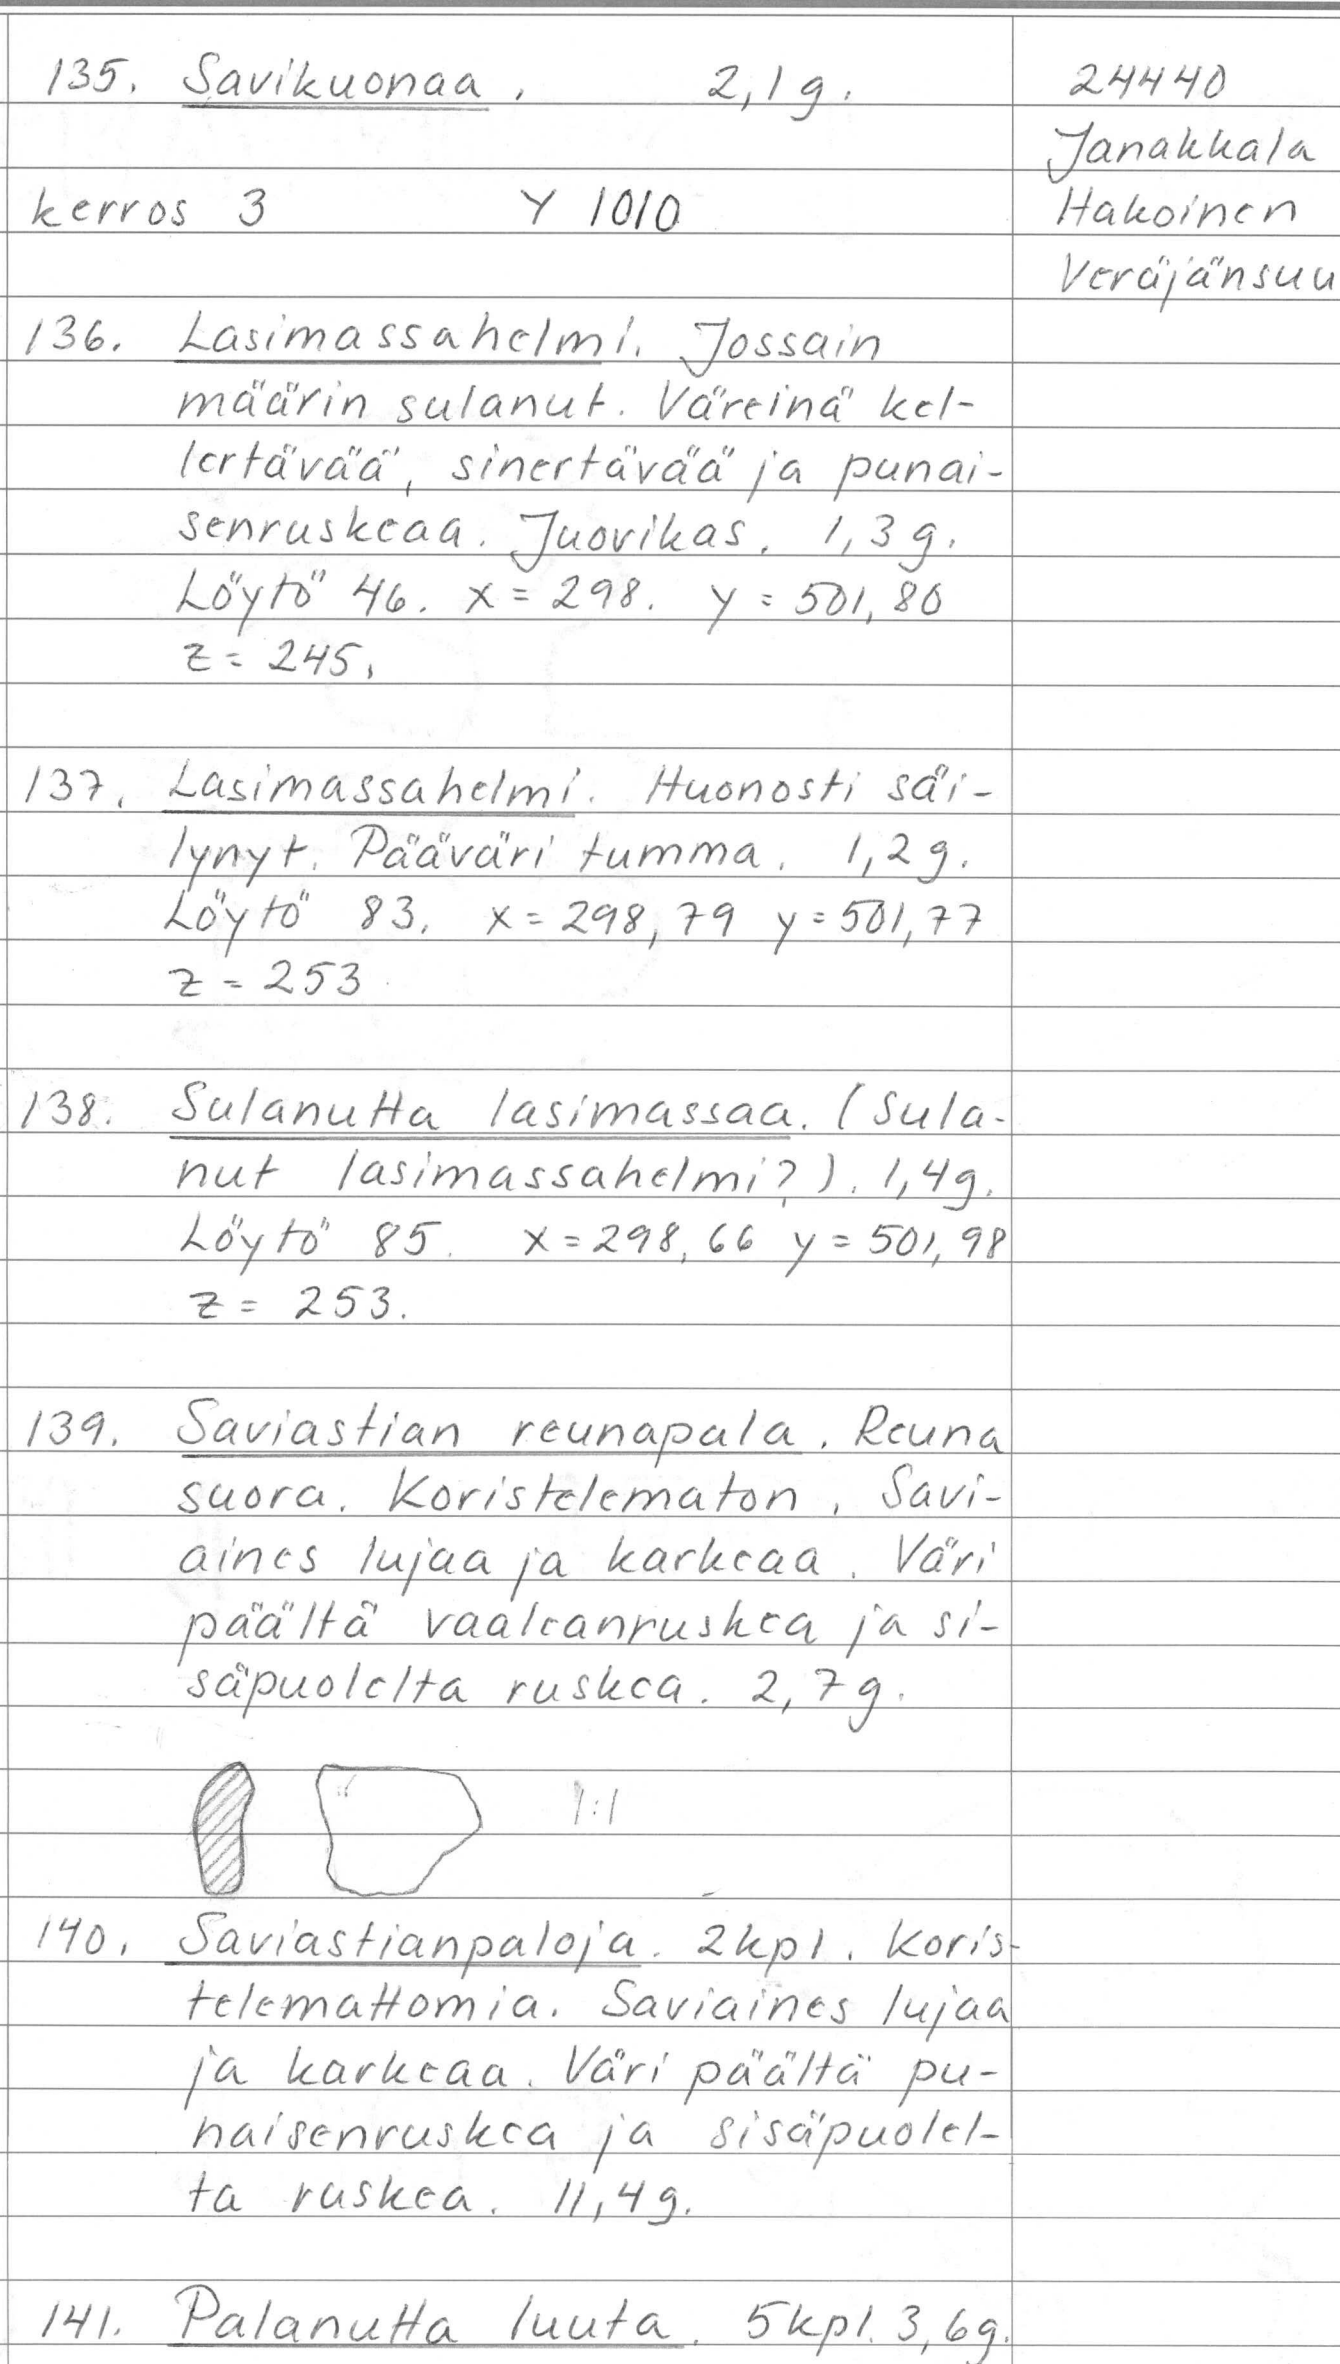 135. Savikuonaa. 2,1 g.
24440
Janakkala
kerros 3 Y 1010
Hakoinen
Veräjänsuu
136. Lasimassahelmi. Jossain
määrin sulanut. Väreinä kel-
lertävää, sinertävää ja punai-
senruskeaa. Juovikas. 1,3 g.
Löytö 46. x = 298. y = 501,80
z = 245.
137. Lasimassahelmi. Huonosti säi-
lynyt. Pääväri tumma. 1,2 g.
Löytö 83. x = 298,79 y = 501,77
z = 253
138. Sulanutta lasimassaa. (Sula-
nut lasimassahelmi?). 1,4 g.
Löytö 85. x = 298,66 y = 501,98
z = 253.
139. Saviastian reunapala. Reuna
suora. Koristelematon. Savi-
aines lujaa ja karkeaa. Väri
päältä vaaleanruskea ja si-
säpuolelta ruskea. 2,7 g.
1:1
140. Saviastianpaloja. 2 kpl. Koris-
telemattomia. Saviaines lujaa
ja karkeaa. Väri päältä pu-
naisenruskea ja sisäpuolel-
ta ruskea. 11,4 g.
141. Palanutta luuta. 5 kpl. 3,6 g.